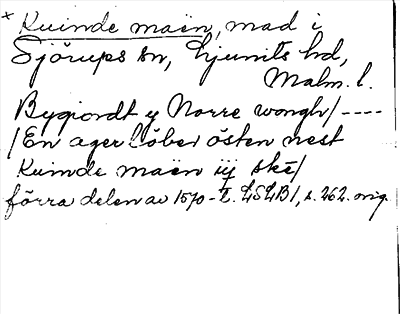 × Kuinde maen, mad i
Sjörups sn, Ljunits hd,
Malm. l.
Bygiordt y Norre wongh/----
/En ager löber östen nest
Kuinde maen iij ske/
förra delen av 1570-t. LSLB1, s. 262. orig.